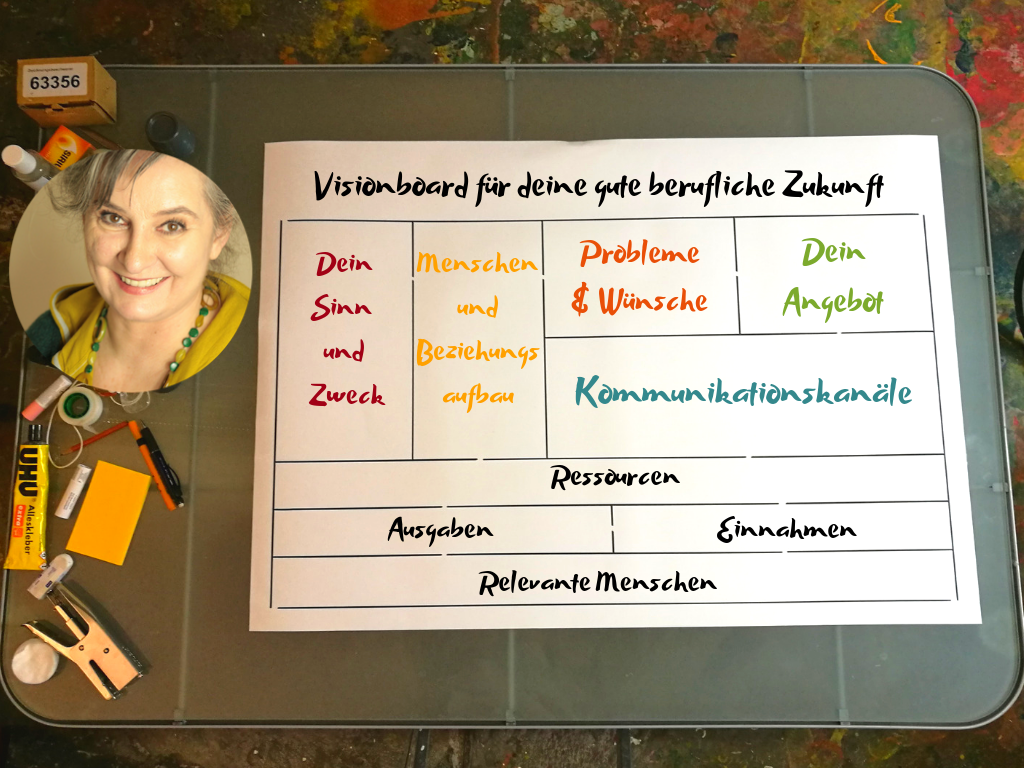 63356
Visionboard für deine gute berufliche Zukunft
Dein
Sinn
und
Zweck
Menschen
und
Beziehungs
aufbau
Probleme
& Wünsche
Dein
Angebot
Kommunikationskanäle
Ressourcen
Ausgaben
Einnahmen
Relevante Menschen
UHU
Alleskleber
extra